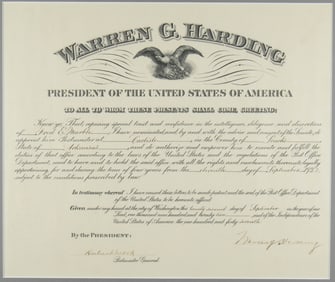 WARREN G. HARDING
PRESIDENT OF THE UNITED STATES OF AMERICA
TO ALL TO WHOM THESE PRESENTS SHALL COME, GREETING:
Know ye, That reposing special trust and confidence in the intelligence, diligence and discretion
of Fred E. I have nominated and by and with the advice and consent of the Senate, do
appoint him Postmaster at Carlisle in the County of
State of Arkansas and do authorize and empower him to execute and fulfill the
duties of that office according to the laws of the United States and the regulations of the Post Office
Department, and to have and to hold the said office with all the rights and emoluments thereunto legally
appertaining for and during the term of four years from the day of September, 1922
subject to the conditions prescribed by law.
In testimony whereof I have caused these letters to be made patent and the seal of the Post Office Department
of the United States to be hereunto affixed.
Given under my hand at the city of Washington the day of September in the year of our
Lord, one thousand nine hundred and twenty two and of the Independence of the
United States of America the one hundred and forty seventh.
By the PRESIDENT:
Warren G Harding
Postmaster General.